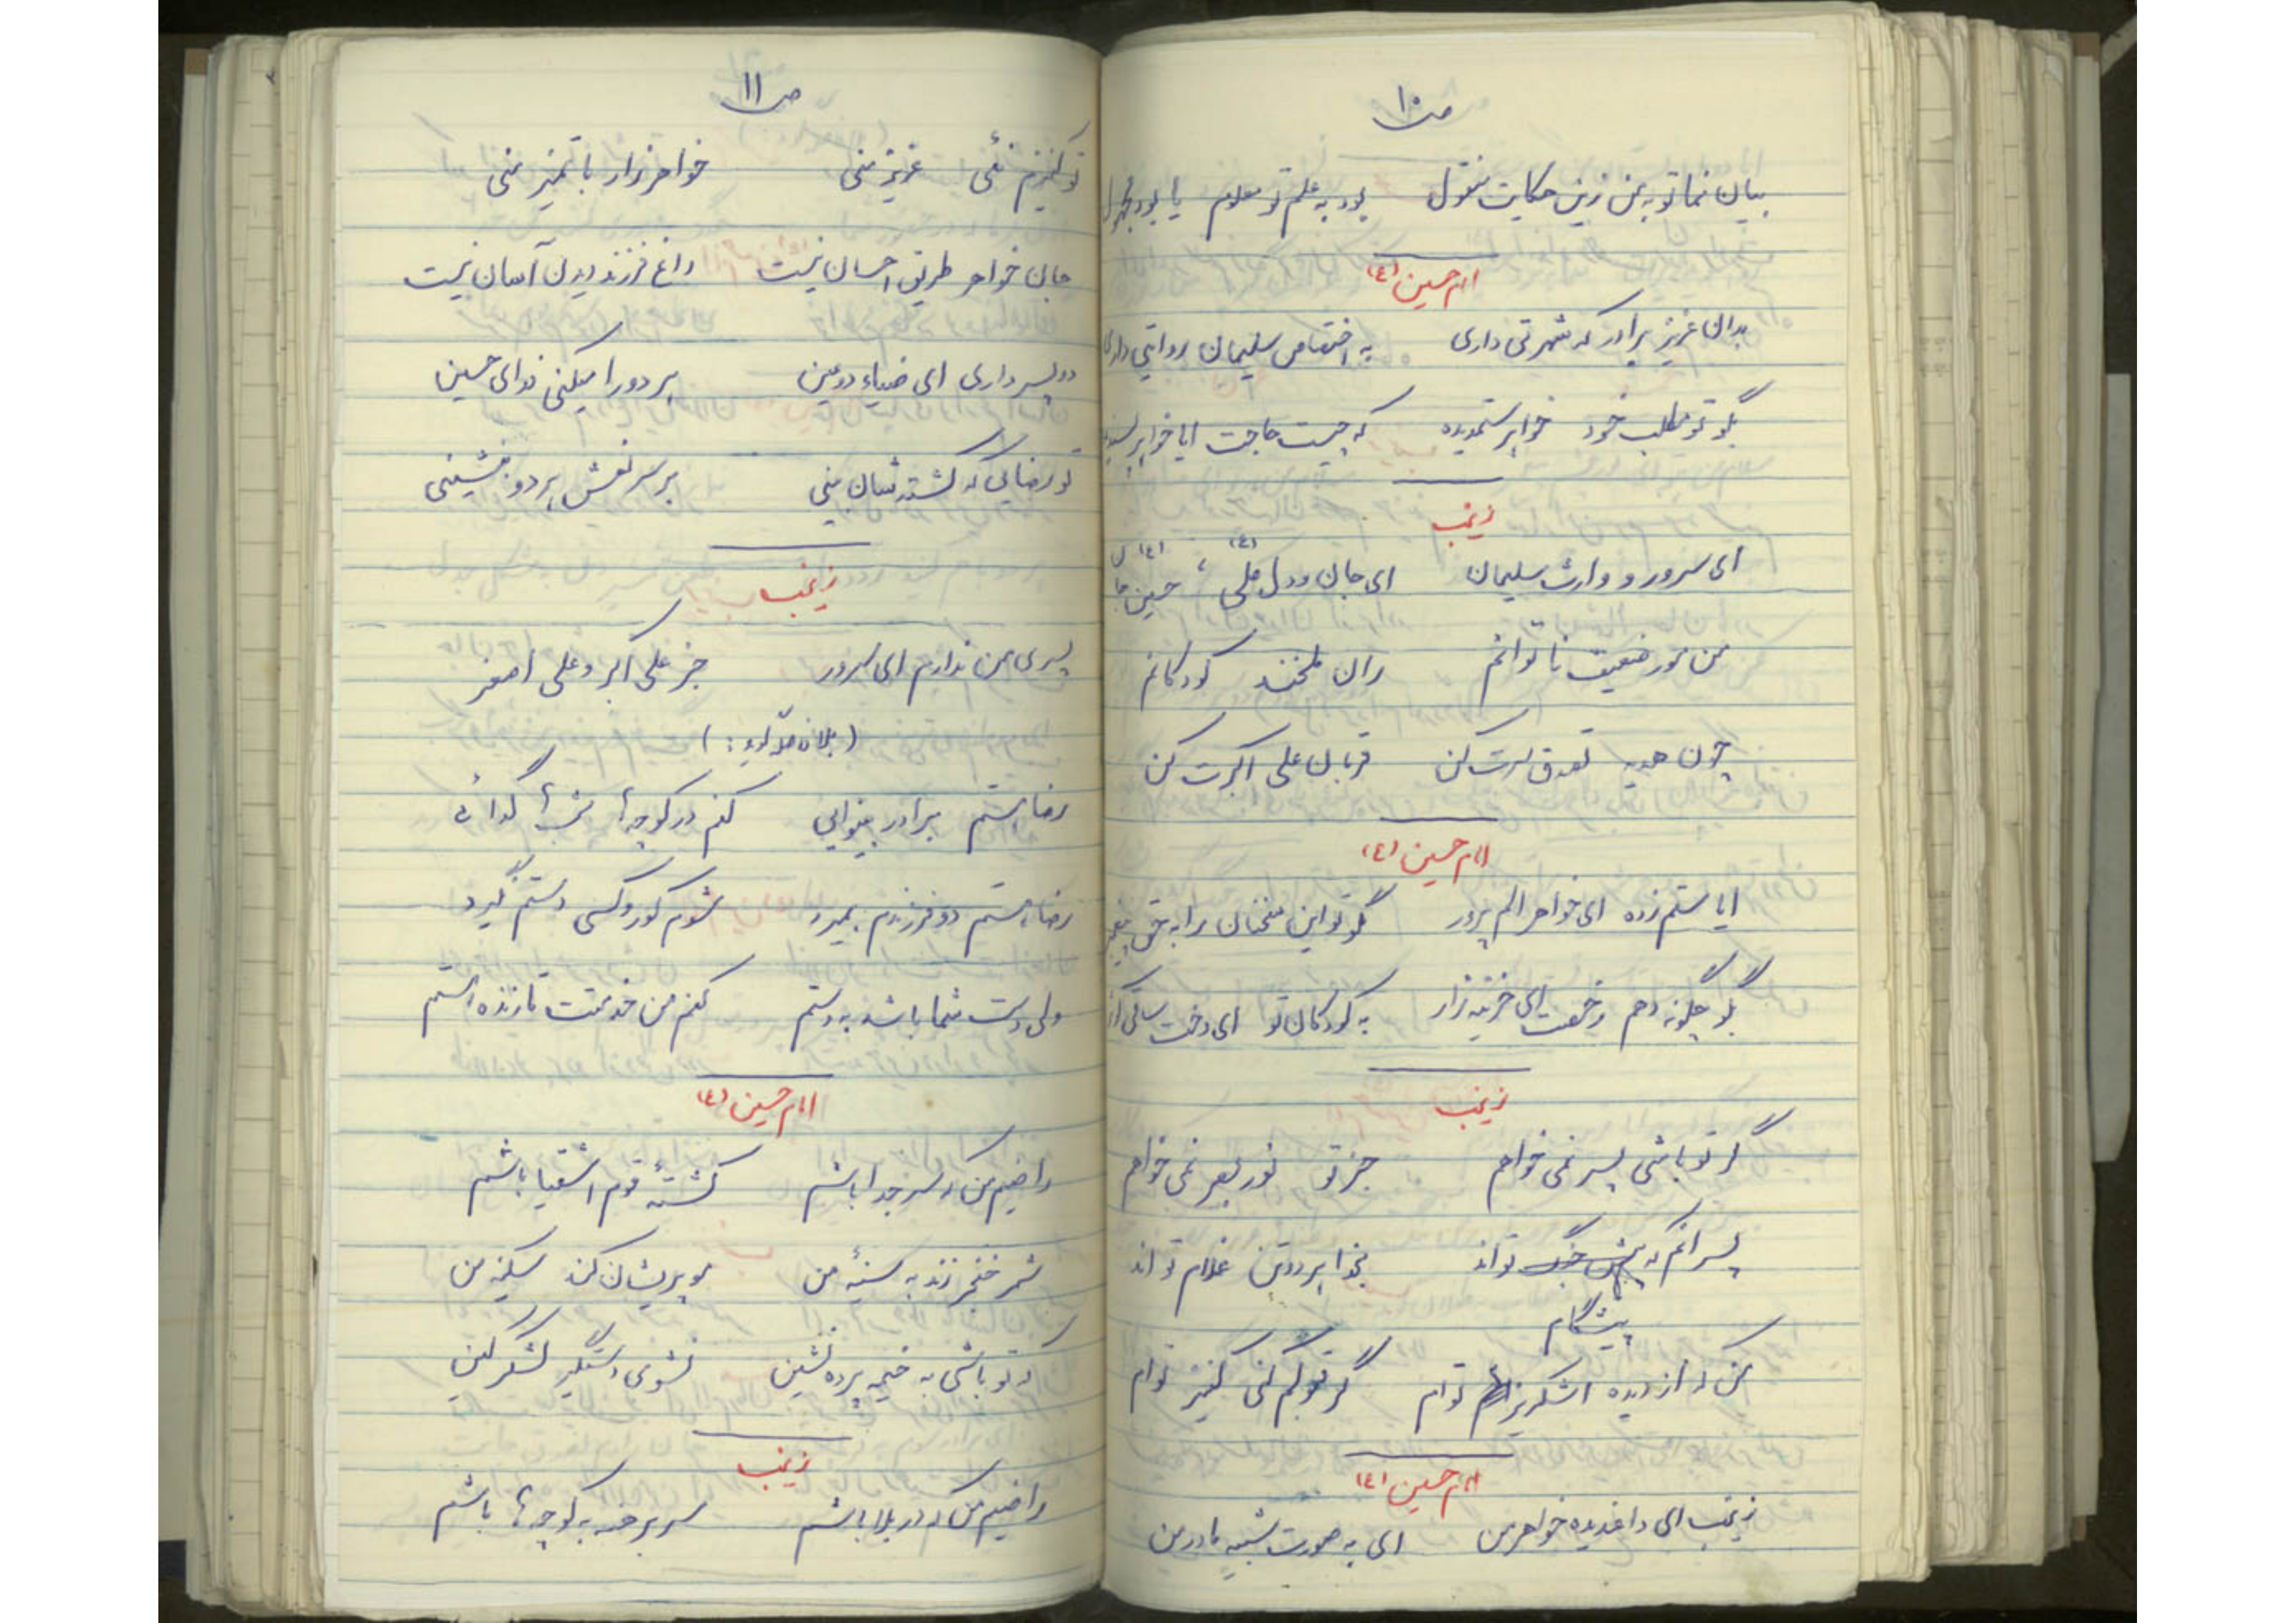 ص ۱۰
بیان نما تو به من زین حکایت منقول بود به علم تو معلوم یا بود مجهول
امام حسین (ع)
بدان عزیز برادر که شهرتی داری به اختصاص سلیمان روایتی داری
بگو تو مطلب خود خواهر ستمدیده که چیست حاجت ایا خواهر
زینب
ای سرور و وارث سلیمان ای جان و دل علی (ع) حسین (ع)
من مور ضعیف ناتوانم ران ملخند کودکانم
چون هدیه تصدق سرت کن قربان علی اکبرت کن
امام حسین (ع)
ایا ستم زده ای خواهر الم پرور مگو تو این سخنان را به حق
بگو چگونه دهم رخصت ای حزینه زار به کودکان تو ای دخت ساقی
زینب
گر تو باشی پسر نمی خواهم جز تو نور بصر نمی خواهم
پسرانم که پیش جنگ تواند نخوا هر دوتن غلام تواند
پیشگام
من که از دیده اشکریز توام گر قبولم کنی کنیز توام
امام حسین (ع)
زینب ای داغدیده خواهر من ای به صورت شبیه مادر من
ص ۱۱
تو کنیزم نئی عزیز منی خواهر زار با تمیز منی
جان خواهر طریق احسان نیست داغ فرزند دیدن آسان نیست
دو پسر داری ای ضیاء دو عین هر دو را میکنی فدای حسین
تو رضایی که کشته شان بینی بر سر نعش هر دو بنشینی
زینب
پسری من ندارم ای سرور جز علی اکبر و علی اصغر
رضا هستم برادر بینوایی کنم در کوچه ها شب ها گدائی
رضا هستم دو فرزندم بمیرد شوم کور و کسی دستم نگیرد
ولی دست شما باشد به دستم کنم من خدمتت تا زنده هستم
امام حسین (ع)
راضیم من که سر جدا باشم کشتهٔ قوم اشقیا باشم
شمر خنجر زند به سینهٔ من مو پریشان کند سکینه من
که تو باشی به خیمه پرده نشین نشوی دستگیر لشگر کین
زینب
راضیم من که در بلا باشم سر برهنه به کوچه ها باشم